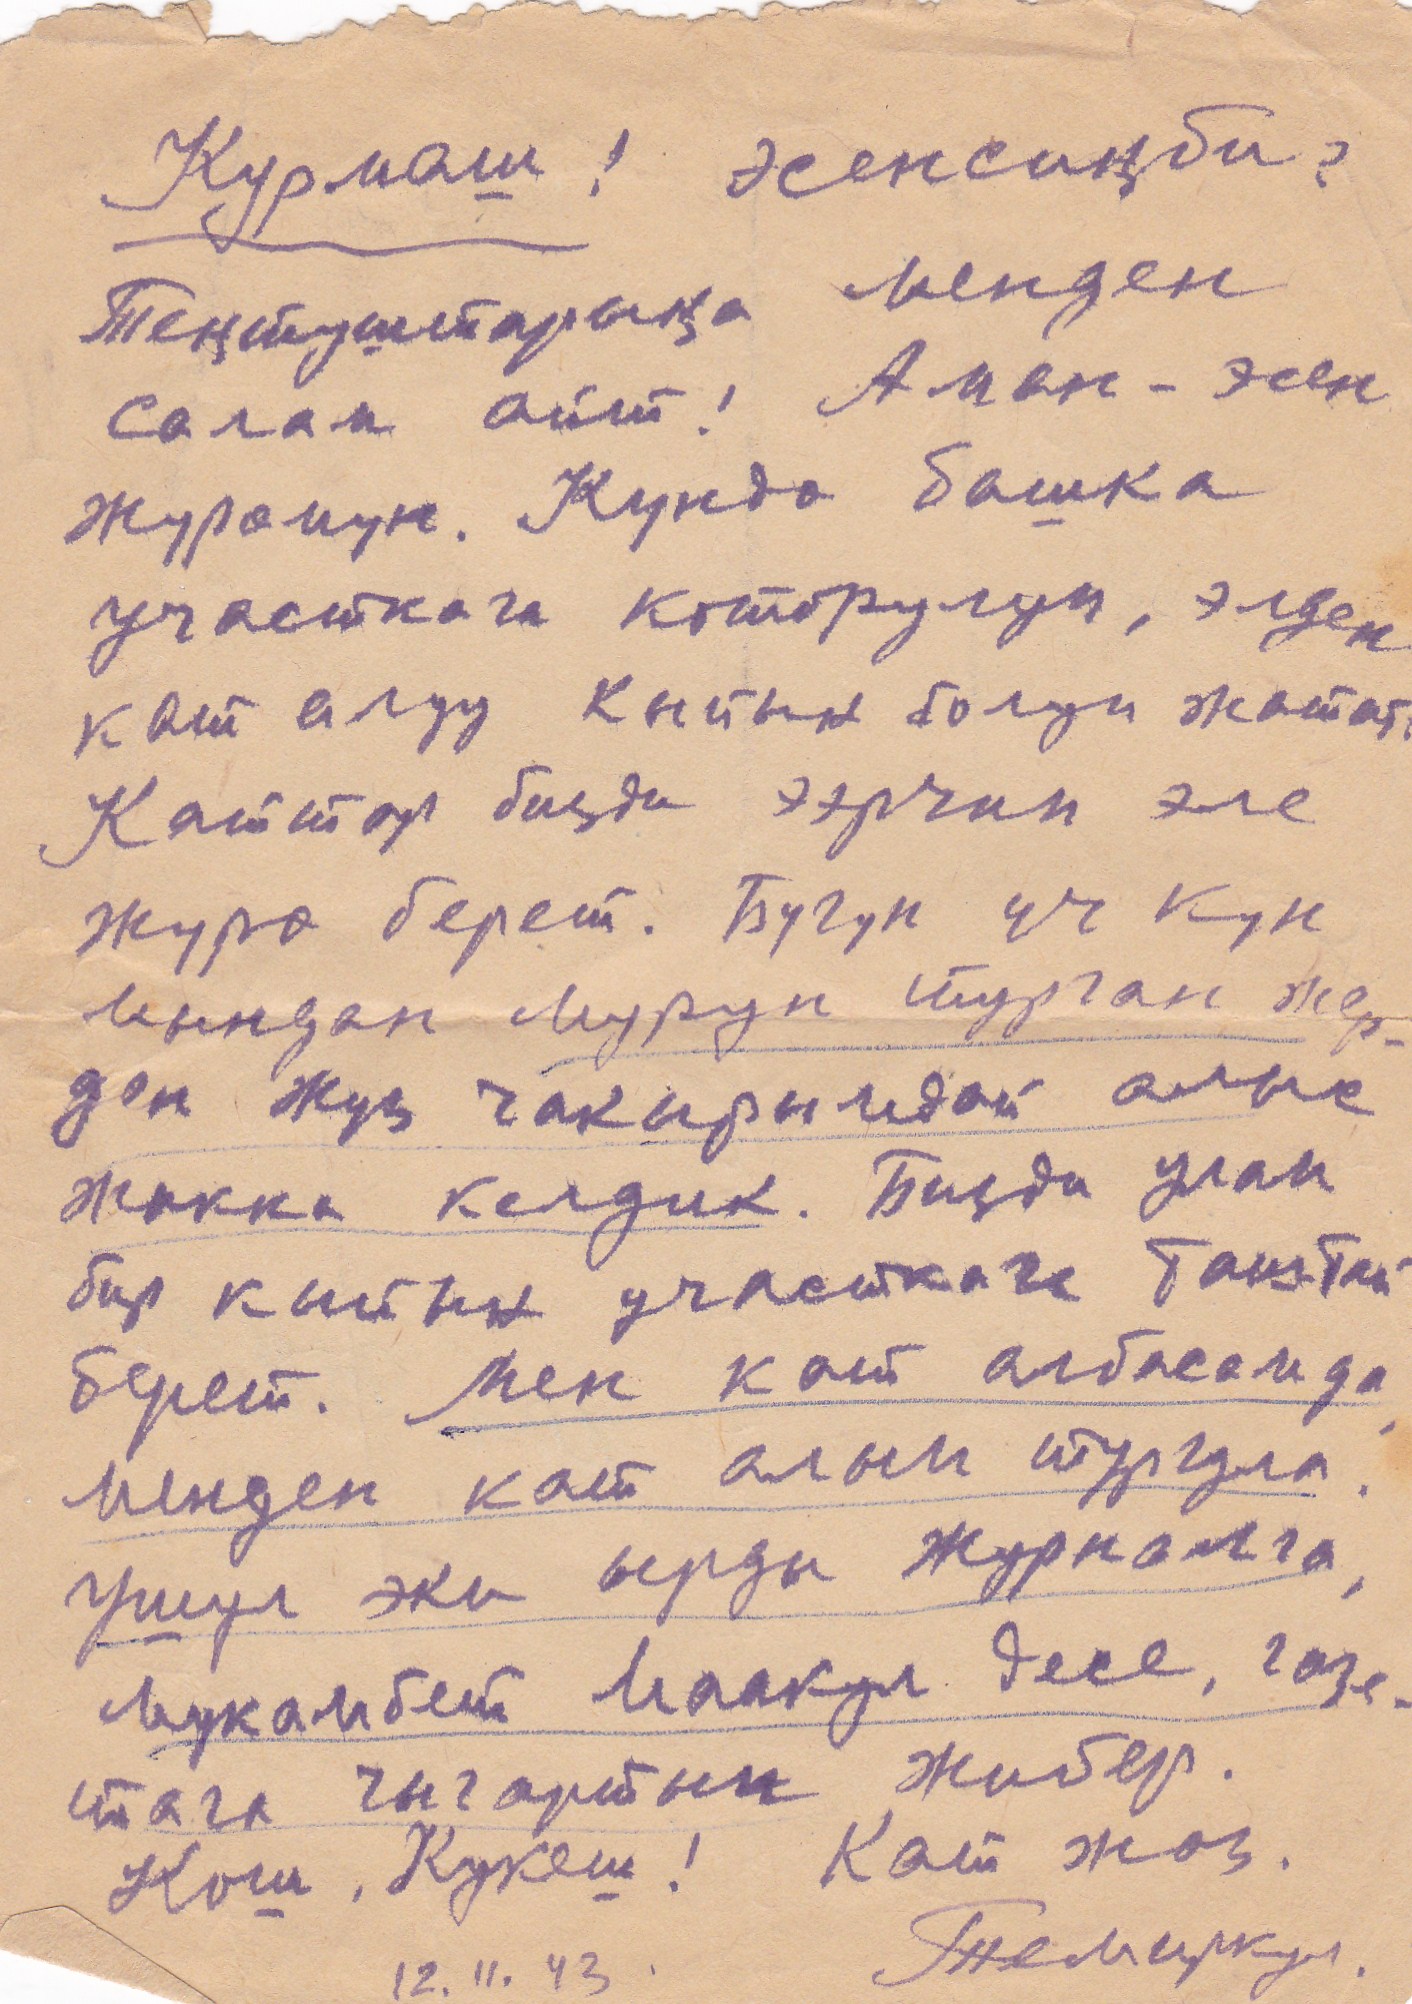 Курмаш! Эсенсиңби?
Теңтуштарыңа менден
салам айт! Аман-эсен
журомун. Кундо башка
участкага которулуп, элден
кат алуу кыйын болуп жатат.
Каттар бизди ээрчип эле
журо берет. Бугун уч кун
мындан мурун турган жер-
ден жуз чакырымдай алыс
жакка келдик. Бизди улам
бир кыйын участкага таштай
берет. Мен кат албасамда,
менден кат алып тургула.
Ушул эки ырды журналга,
Мукамбет маакул десе, газе-
тага чыгартып жибер.
Кош, Кукеш! Кат жаз.
12.II.43. Темиркул.